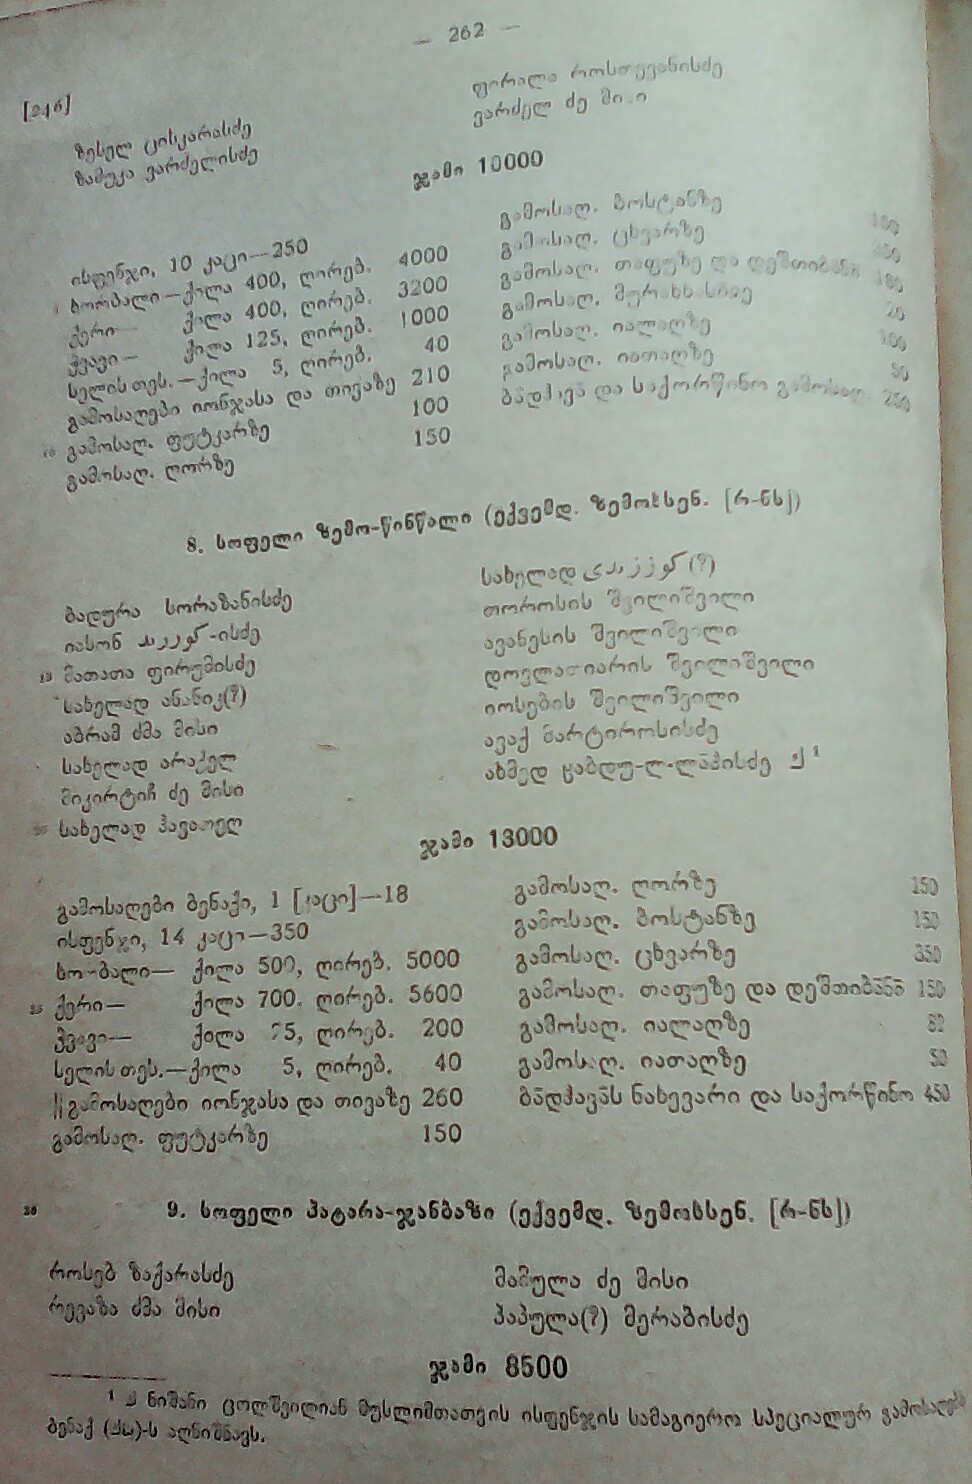 — 262 —
[246]
ფირალა როსთევანისძე
ვარძელ ძე
ზესელ ცისკარასძე
ზამუკა ვარძელისძე
ჯამი 10000
ისფენჯი, 10 კაცი—250
ხორბალი—ქილა 400, ღირებ. 4000
ქერი— ქილა 400, ღირებ. 3200
ჭვავი— ქილა 125, ღირებ. 1000
სელის თეს.—ქილა 5, ღირებ. 40
გამოსაღები იონჯასა და თივაზე 210
გამოსაღ. ფუტკარზე 100
გამოსაღ. ღორზე 150
გამოსაღ. ბოსტანზე
გამოსაღ. ცხვარზე
გამოსაღ. თაფუზე და დეშთიბანზე
გამოსაღ.
გამოსაღ. იალაღზე
გამოსაღ. იათაღზე 50
ბადჰავა და საქორწინო გამოსაღ.
8. სოფელი ზემო-წინწალი (ექვემდ. ზემოხსენ. [რ-ნს])
ბადურა სორაზანისძე
იასონ -ისძე
მათათა ფირუმისძე
სახელად ანანიკ(?)
აბრამ ძმა მისი
სახელად არაქელ
მიკირტიჩ ძე მისი
სახელად
სახელად (?)
თოროსის შვილიშვილი
ავანესის შვილიშვილი
დოვლათიარის შვილიშვილი
იოსების შვილიშვილი
ავაქ მარტიროსისძე
ახმედ
ჯამი 13000
გამოსაღები ბენაქი, 1 [კაცი]—18
ისფენჯი, 14 კაცი—350
ხორბალი— ქილა 500, ღირებ. 5000
25 ქერი— ქილა 700, ღირებ. 5600
ჭვავი— ქილა ღირებ. 200
სელის თეს.—ქილა 5, ღირებ. 40
||გამოსაღები იონჯასა და თივაზე 260
გამოსაღ. ფუტკარზე 150
გამოსაღ. ღორზე 150
გამოსაღ. ბოსტანზე 150
გამოსაღ. ცხვარზე 350
გამოსაღ. თაფუზე და დეშთიბანზე 150
გამოსაღ. იალაღზე
გამოსაღ. იათაღზე 50
ბადჰავას ნახევარი და საქორწინო 450
30 9. სოფელი პატარა-ჯანბაზი (ექვემდ. ზემოხსენ. [რ-ნს])
როსებ ზაქარასძე
რევაზა ძმა მისი
მამულა ძე მისი
პაპულა(?) მერაბისძე
ჯამი 8500
1 ნიშანი ცოლშვილიან მუსლიმთათვის ისფენჯის სამაგიერო სპეციალურ გამოსაღებს
ბენაქ -ს აღნიშნავს.